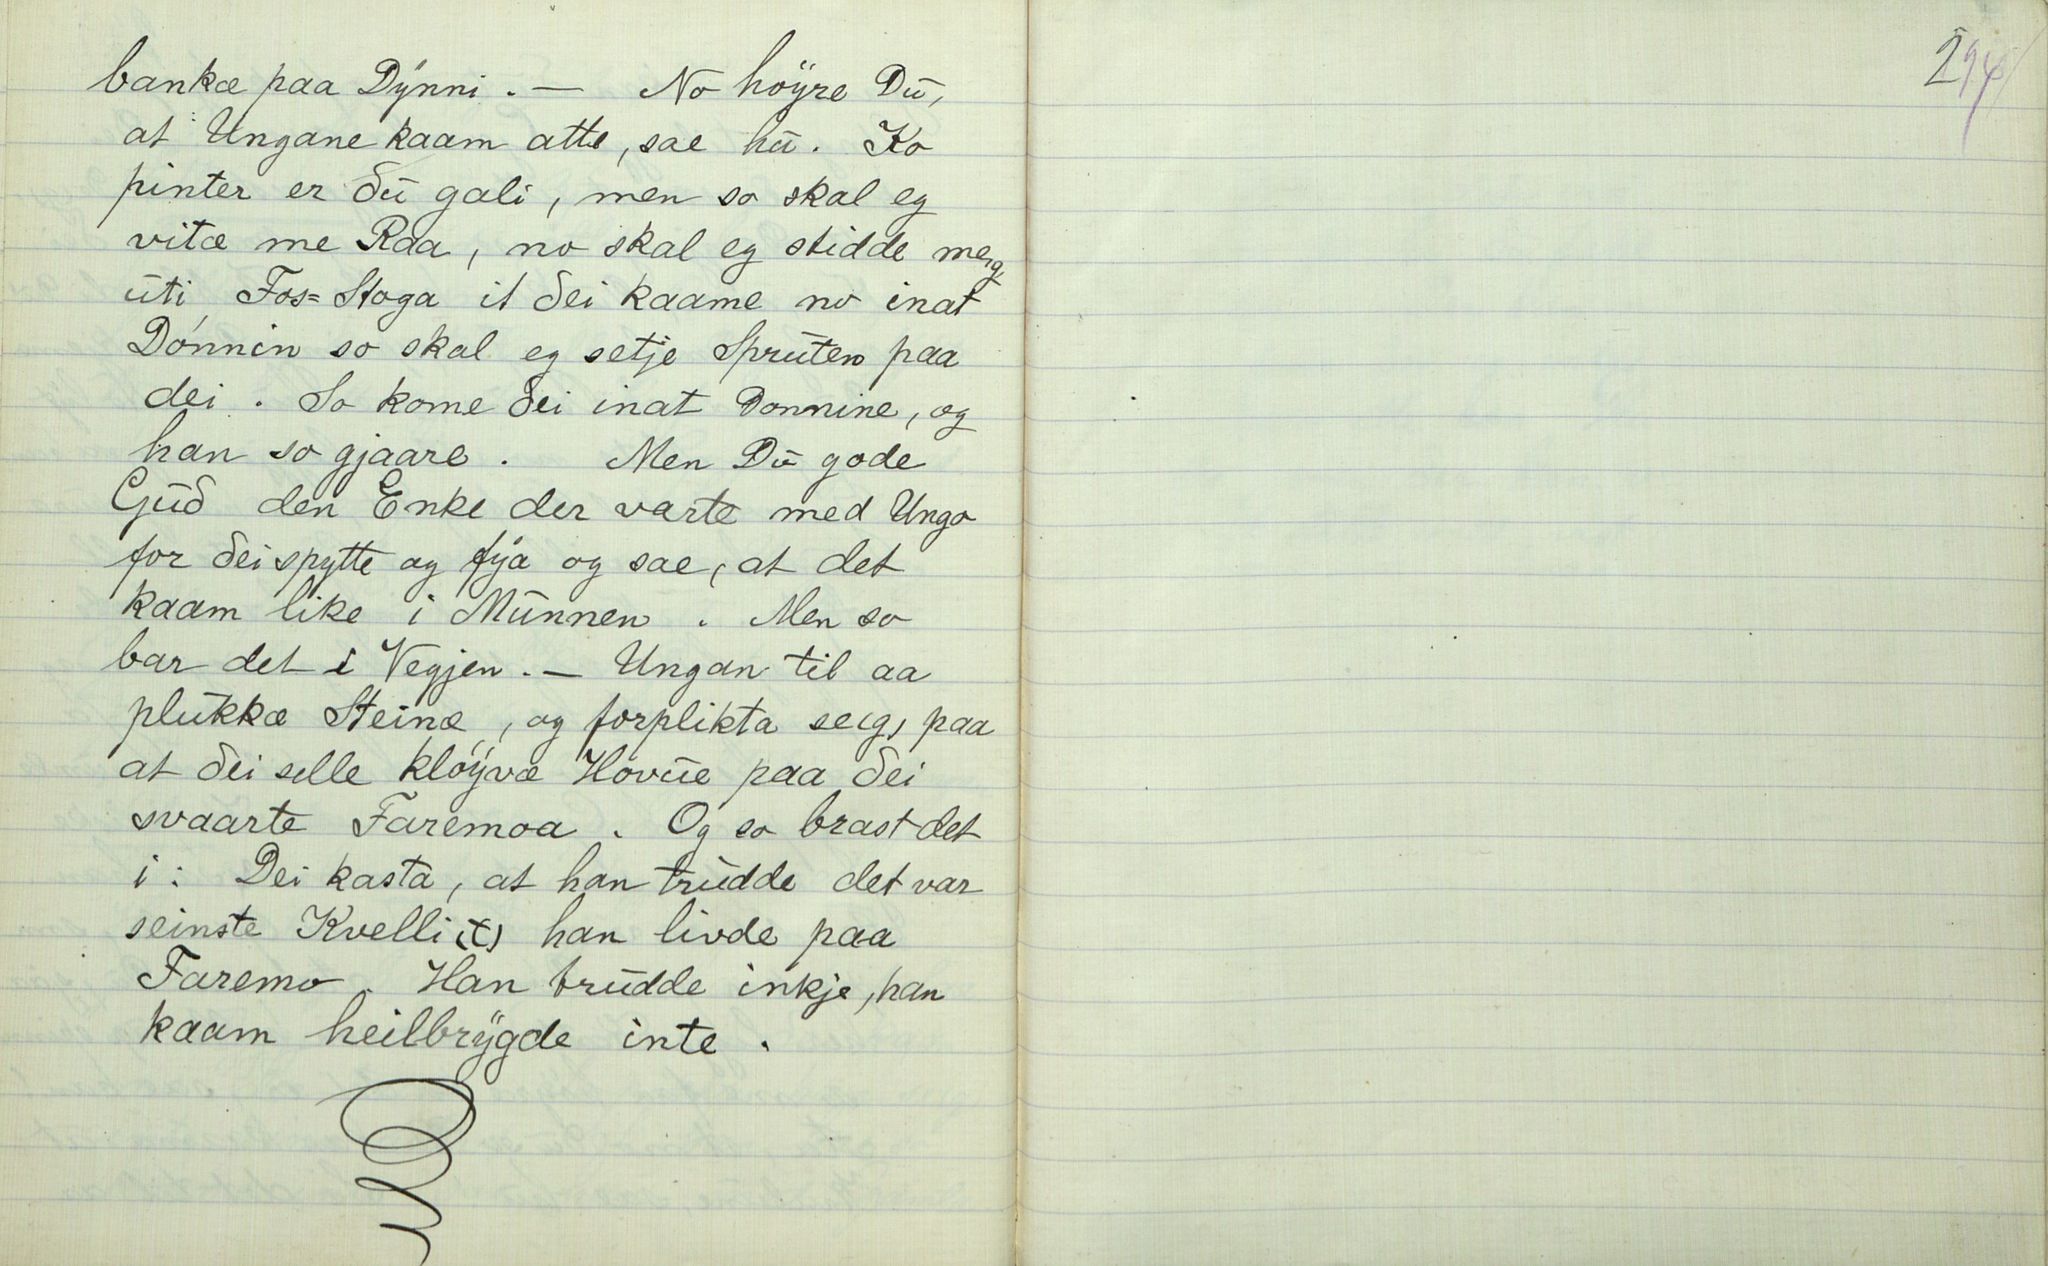 bankæ paa Dÿnni. — No höÿre Dū,
at Ungane kaam atte, sae hū. Ko
pinter er dū gali, men so skal eg
vitæ me Raa, no skal eg stidde me(g)
ūti Fos=Stoga it dei kaame no inat
Dónnin so skal eg setje Sprūten paa
dei. So kome dei inat Donnine, og
han so gjaare. Men Dū gode
Gūd den Enke der varte med Ungo
for dei spytte og fÿa og sae, at det
kaam like i Mūnnen. Men so
bar det i Vegjen. — Ungan til aa
plūkkæ Steinæ, og forplikta se(g) paa
at dei selle klöÿvæ Hovūe paa dei
svaarte Faremoa. Og so brast det
i: Dei kasta, at han trūdde det var
seinste Kvelli(t) han livde paa
Faremo. Han trūdde inkje, han
kaam heilbrÿgde inte.
294